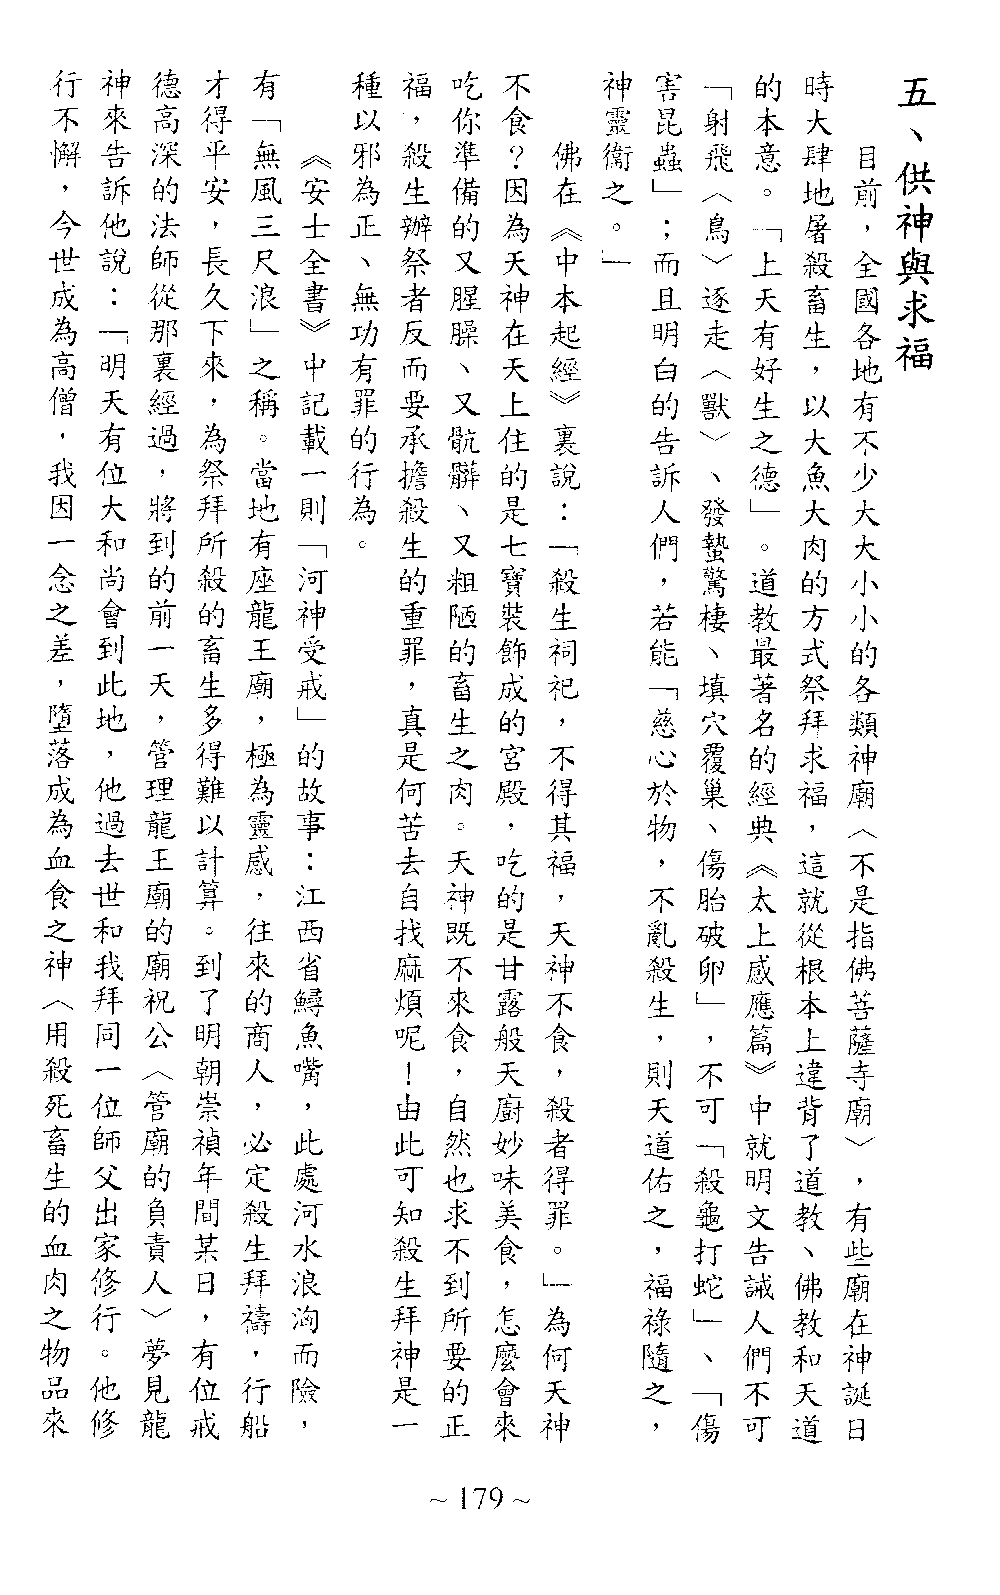 五、供神與求福
目前，全國各地有不少大大小小的各類神廟（不是指佛菩薩寺廟），有些廟在神誕日
時大肆地屠殺畜生，以大魚大肉的方式祭拜求福，這就從根本上違背了道教、佛教和天道
的本意。「上天有好生之德」。道教最著名的經典《太上感應篇》中就明文告誡人們不可
「射飛（鳥）逐走（獸）、發蟄驚棲、填穴覆巢、傷胎破卵」，不可「殺龜打蛇」、「傷
害昆蟲」；而且明白的告訴人們，若能「慈心於物，不亂殺生，則天道佑之，福祿隨之，
神靈衞之。」
佛在《中本起經》裏說：「殺生祠祀，不得其福，天神不食，殺者得罪。」為何天神
不食？因為天神在天上住的是七寶裝飾成的宮殿，吃的是甘露般天廚妙味美食，怎麼會來
吃你準備的又腥臊、又骯髒、又粗陋的畜生之肉。天神既不來食，自然也求不到所要的正
福，殺生辦祭者反而要承擔殺生的重罪，真是何苦去自找麻煩呢！由此可知殺生拜神是一
種以邪為正、無功有罪的行為。
《安士全書》中記載一則「河神受戒」的故事：江西省鱘魚嘴，此處河水浪洶而險，
有「無風三尺浪」之稱。當地有座龍王廟，極為靈感，往來的商人，必定殺生拜禱，行船
才得平安，長久下來，為祭拜所殺的畜生多得難以計算。到了明朝崇禎年間某日，有位戒
德高深的法師從那裏經過，將到的前一天，管理龍王廟的廟祝公（管廟的負責人）夢見龍
神來告訴他說：「明天有位大和尚會到此地，他過去世和我拜同一位師父出家修行。他修
行不懈，今世成為高僧，我因一念之差，墮落成為血食之神（用殺死畜生的血肉之物品來
~ 179 ~